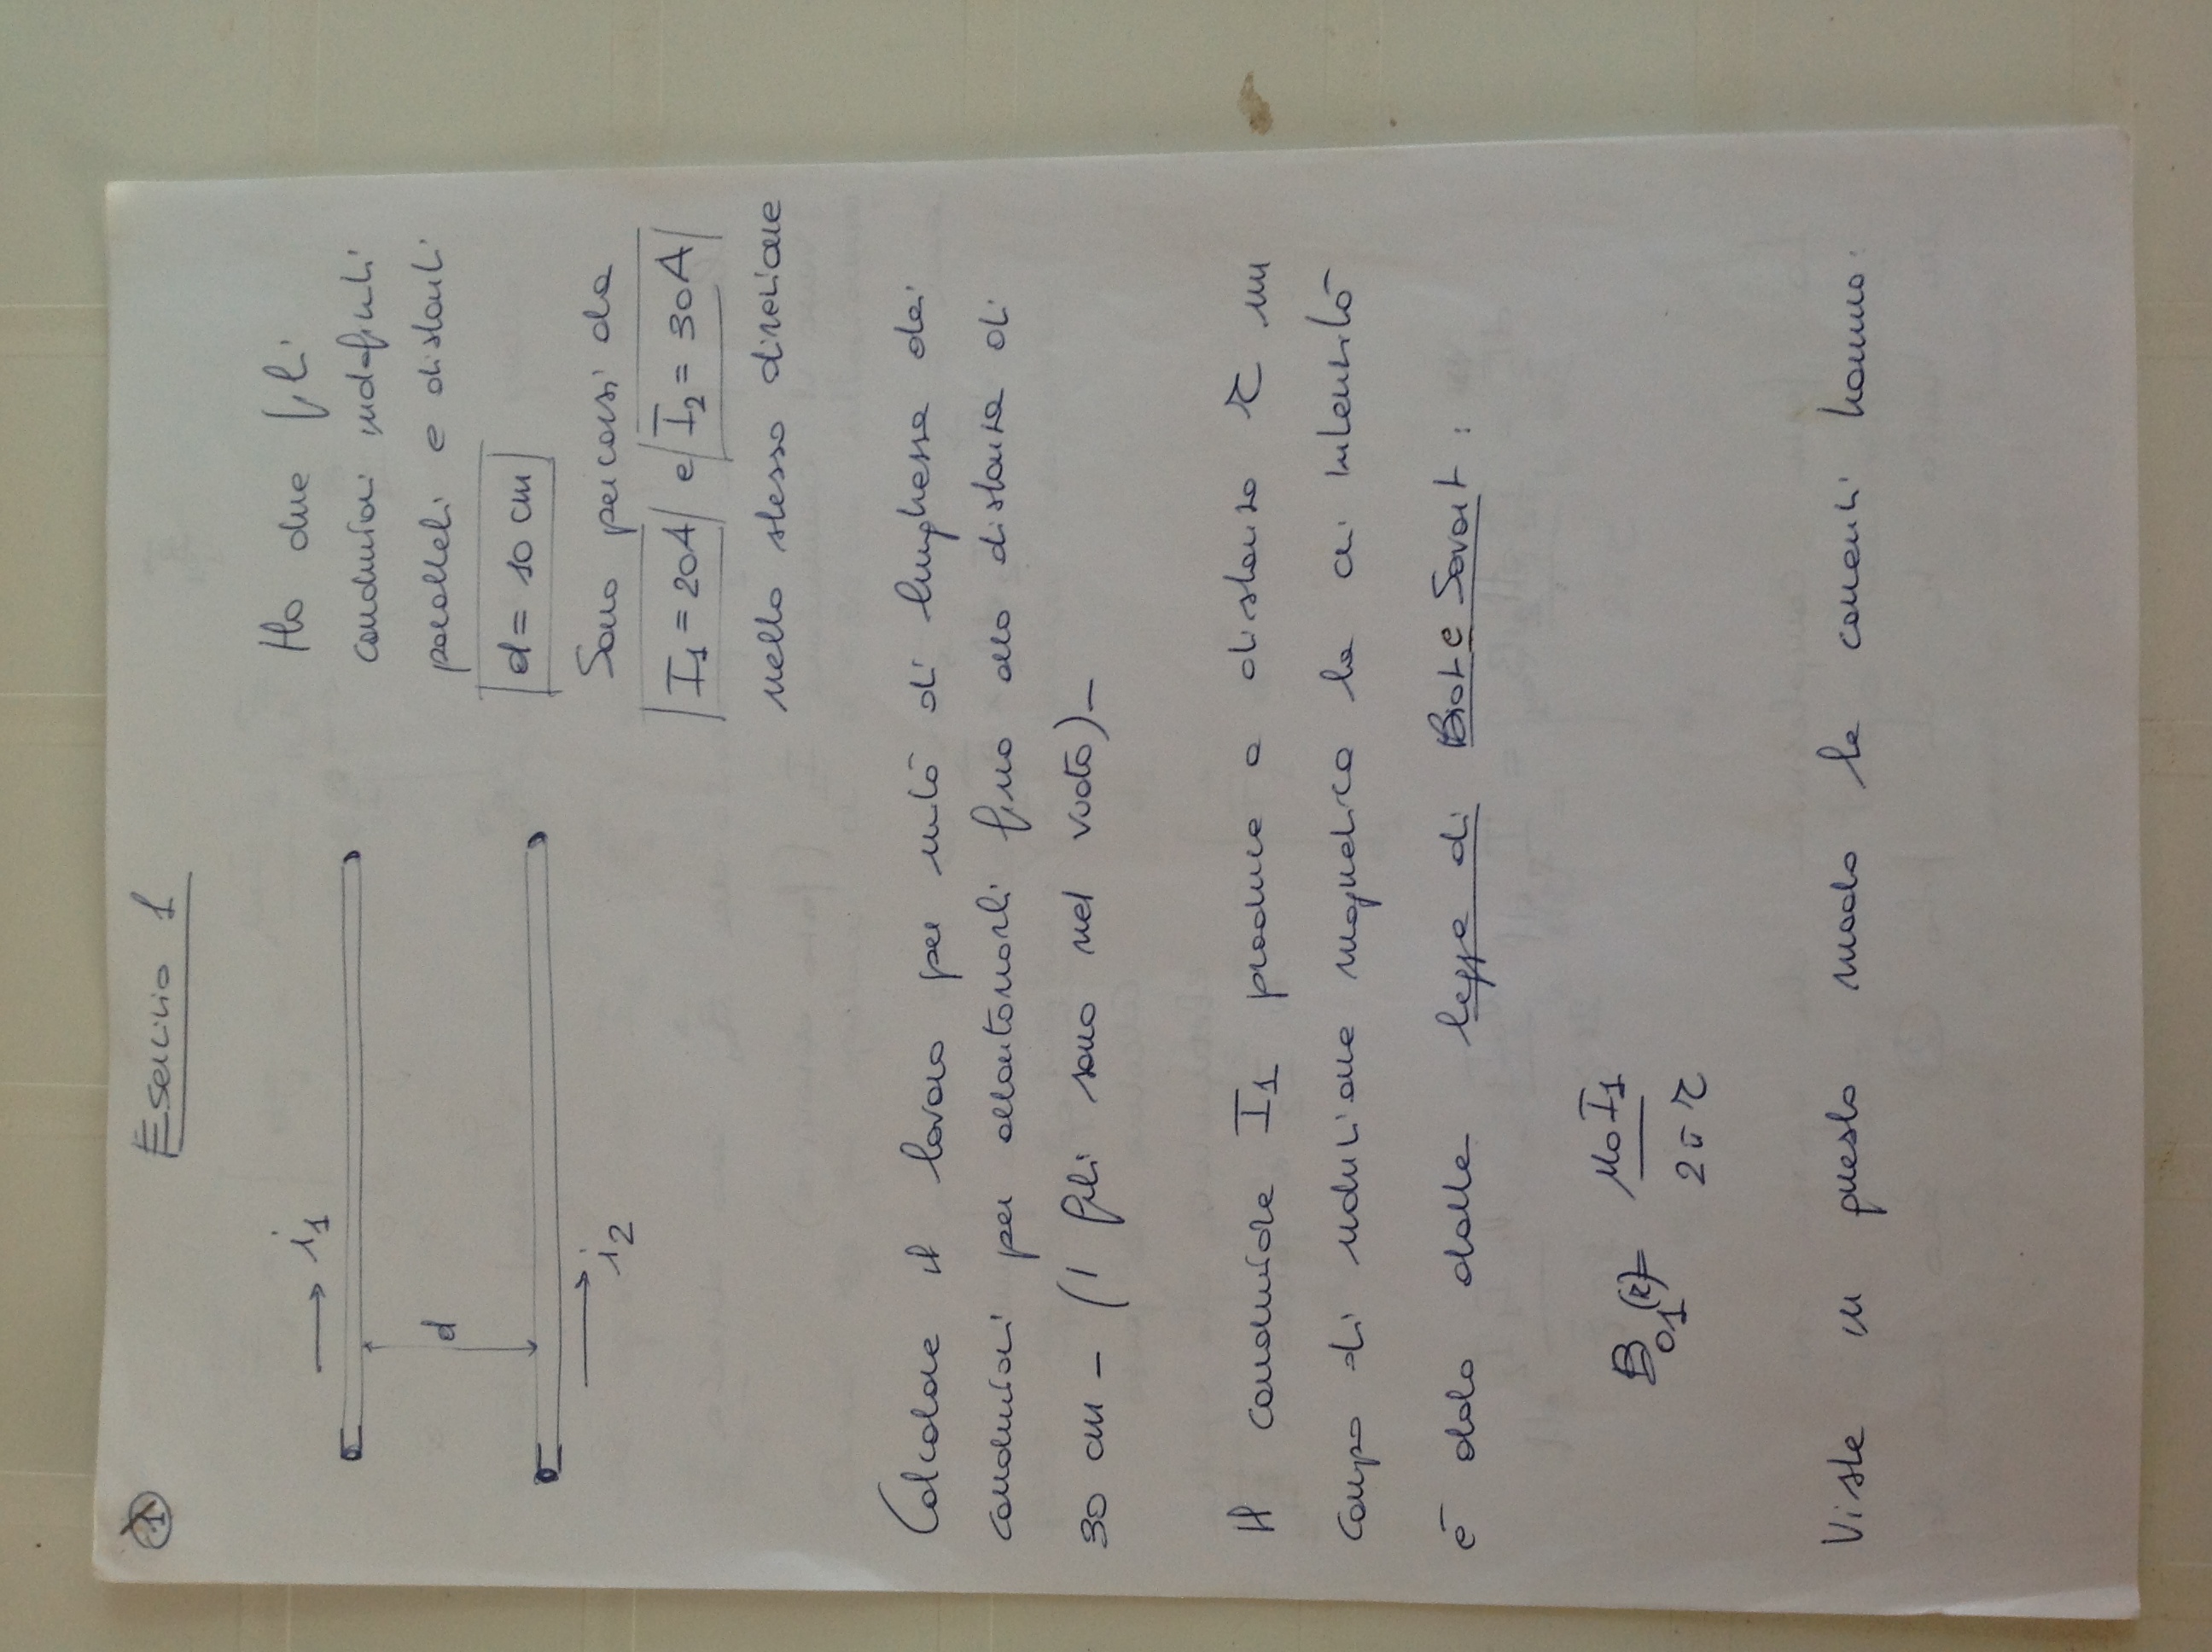 1
Esercizio 1
i1
d
i2
Ho due fili
conduttori indefiniti
paralleli e distanti
d = 10 cm
Sono percorsi da
I1 = 20A e I2 = 30A
nella stessa direzione
Calcolare il lavoro per unità di lunghezza dei
conduttori per allontanarli fino alla distanza di
30 cm – (I fili sono nel vuoto) –
Il conduttore I1 produce a distanza r un
campo di induzione magnetica la cui intensità
è data dalla legge di Biot e Savart :
B01(r) = μ0 I1 / 2π r
Viste in questo modo le correnti hanno: